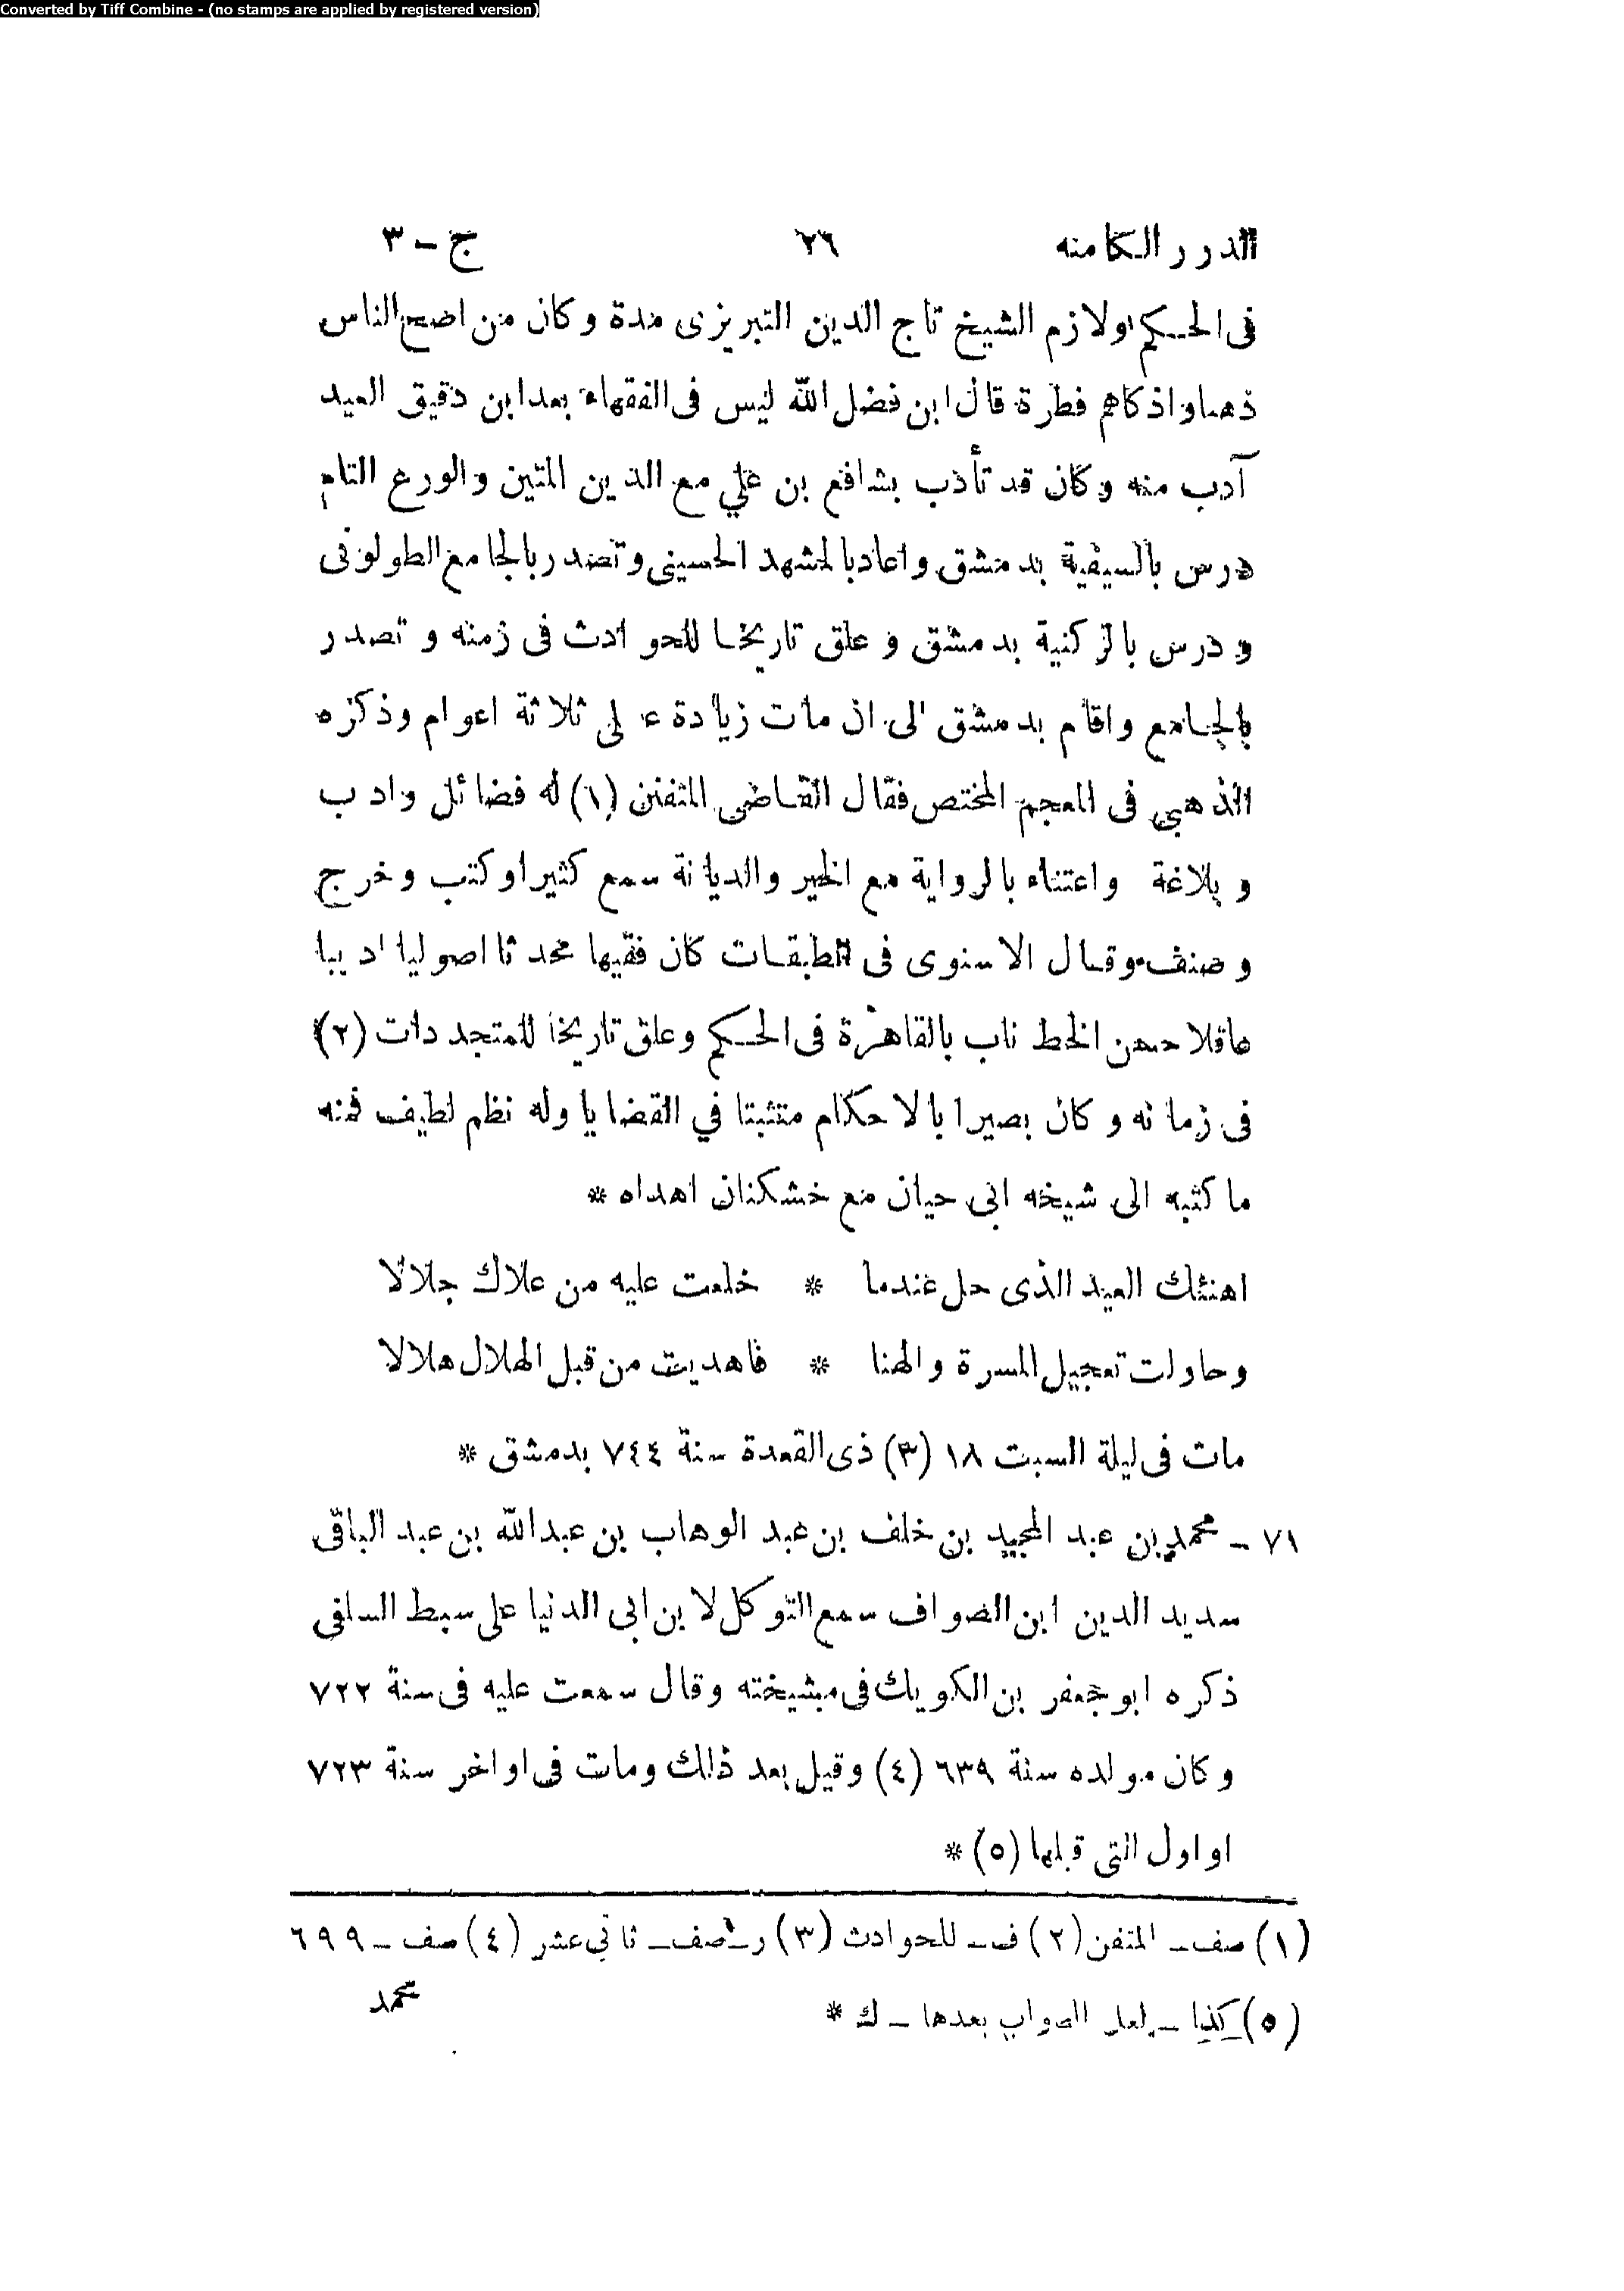 Converted by Tiff Combine - (no stamps are applied by registered version)
الدرر الكامنه ٢٦ ج - ٣
فى الحكم ولازم الشيخ تاج الدين التبريزى مدة وكان من اصح الناس
ذهنا واذكاهم فطرة قال ابن فضل الله ليس فى الفقهاء بعد ابن دقيق العيد
آدب منه وكان قد تأدب بشافع بن علي مع الدين المتين والورع التام
درس بالسيفية بدمشق واعاد بالمشهد الحسينى وتصدر بالجامع الطولونى
ودرس بالركنية بدمشق وعلق تاريخا للحوادث فى زمنه وتصدر
بالجامع واقام بدمشق الى ان مات زيادة على ثلاثة اعوام وذكره
الذهبي فى المعجم المختص فقال القاضى المتفنن (١) له فضائل وادب
وبلاغة واعتناء بالرواية مع الخير والديانة سمع كثيرا وكتب وخرج
وصنف وقال الاسنوى فى الطبقات كان فقيها محدثا اصوليا اديبا
عاقلا حسن الخط ناب بالقاهرة فى الحكم وعلق تاريخا للمتجددات (٢)
فى زمانه وكان بصيرا بالاحكام متثبتا في القضايا وله نظم لطيف فمنه
ما كتبه الى شيخه ابى حيان مع خشكنان اهداه *
اهنئك العيد الذى حل عندما * خلعت عليه من علاك جلالا
وحاولت تعجيل المسرة والهنا * فاهديت من قبل الهلال هلالا
مات فى ليلة السبت ١٨ (٣) ذى القعدة سنة ٧٤٤ بدمشق *
٧١ - محمد بن عبد المجيد بن خلف بن عبد الوهاب بن عبدالله بن عبد الباقى
سديد الدين ابن الصواف سمع التوكل لابن ابى الدنيا على سبط السلفى
ذكره ابو جعفر بن الكويك فى مشيخته وقال سمعت عليه فى سنة ٧٢٢
وكان مولده سنة ٦٣٩ (٤) وقيل بعد ذلك ومات فى اواخر سنة ٧٢٣
او اول التى قبلها (٥) *
(١) صف - المتفن (٢) ف - للحوادث (٣) ر - صف - ثانى عشر (٤) صف - ٦٩٩
(٥) كذا - لعل الصواب بعدها - ك *
محمد